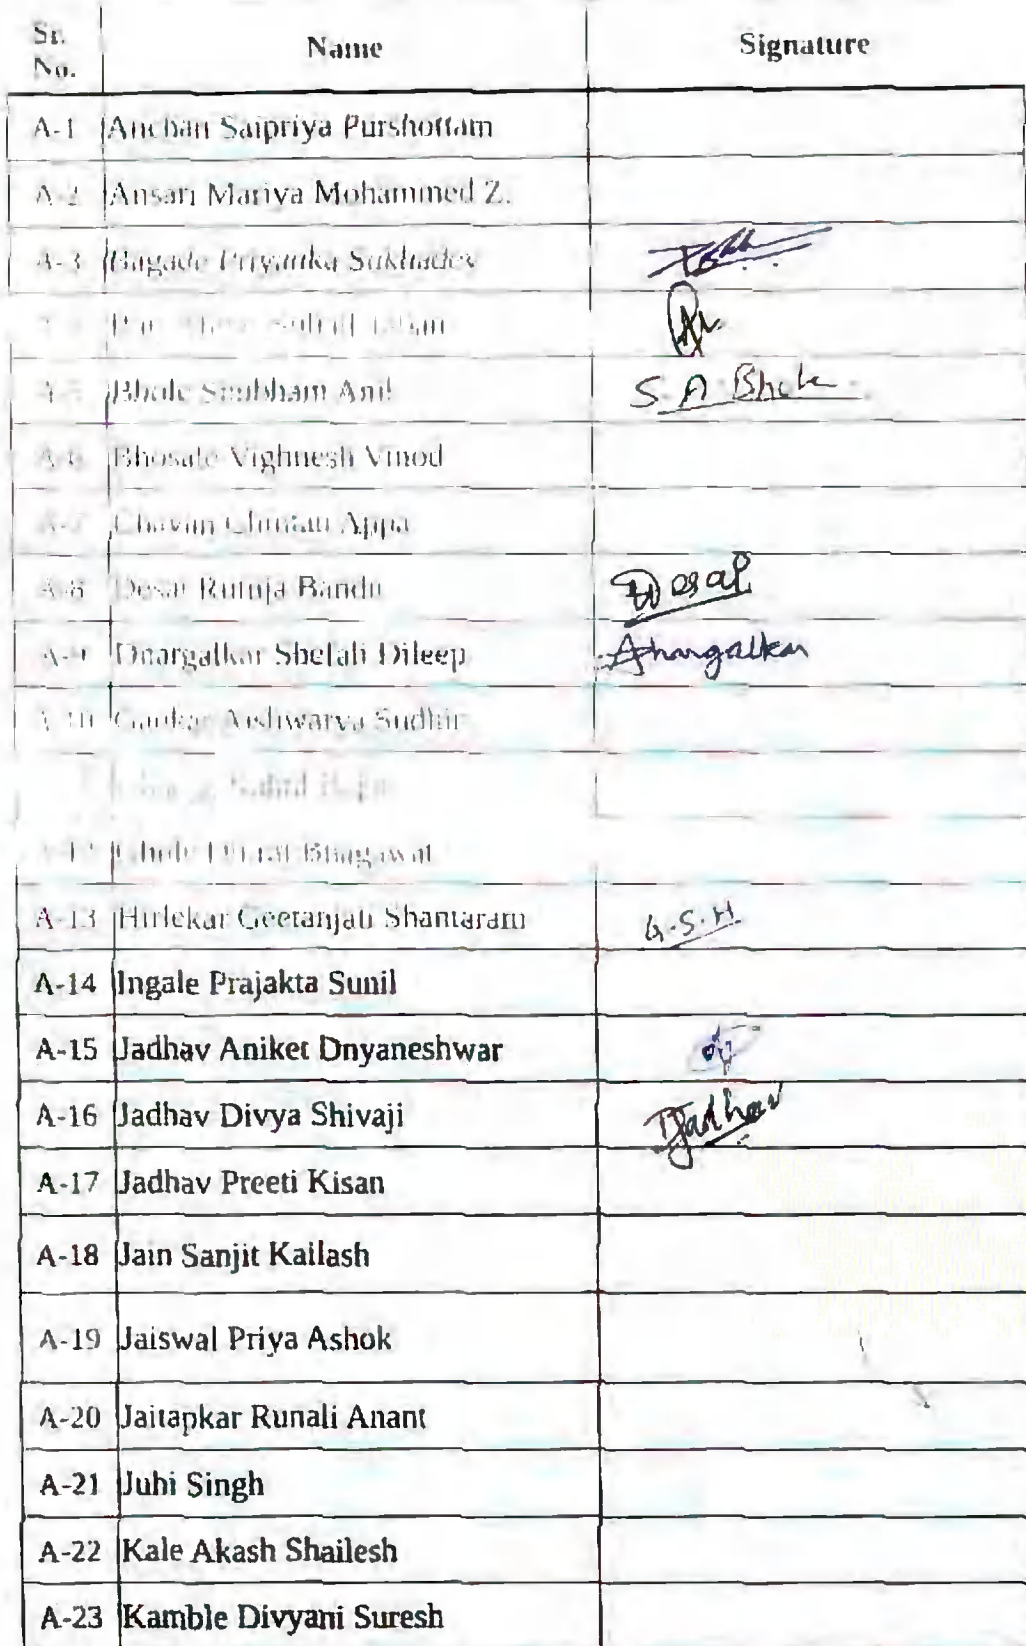 Sr. No. Name Signature
A-1 Anchan Saipriya Purshottam
A-2 Ansari Mariya Mohammed Z.
A-3 Bagade Priyanka Sukhadev
A-5 Bhole Shubham Anil S. A Bhole
A-6 Bhosale Vighnesh Vinod
A-7 Chavan Chintan Appa
A-8 Desai Rutuja Bandu Desai
A-9 Dhargalkar Shefali Dileep Dhargalkar
A-10 Gaonkar Aishwarya Sudhir
A-12 Ghode Bharat Bhagawat
A-13 Hirlekar Geetanjali Shantaram G.S.H
A-14 Ingale Prajakta Sunil
A-15 Jadhav Aniket Dnyaneshwar
A-16 Jadhav Divya Shivaji DJadhav
A-17 Jadhav Preeti Kisan
A-18 Jain Sanjit Kailash
A-19 Jaiswal Priya Ashok
A-20 Jaitapkar Runali Anant
A-21 Juhi Singh
A-22 Kale Akash Shailesh
A-23 Kamble Divyani Suresh